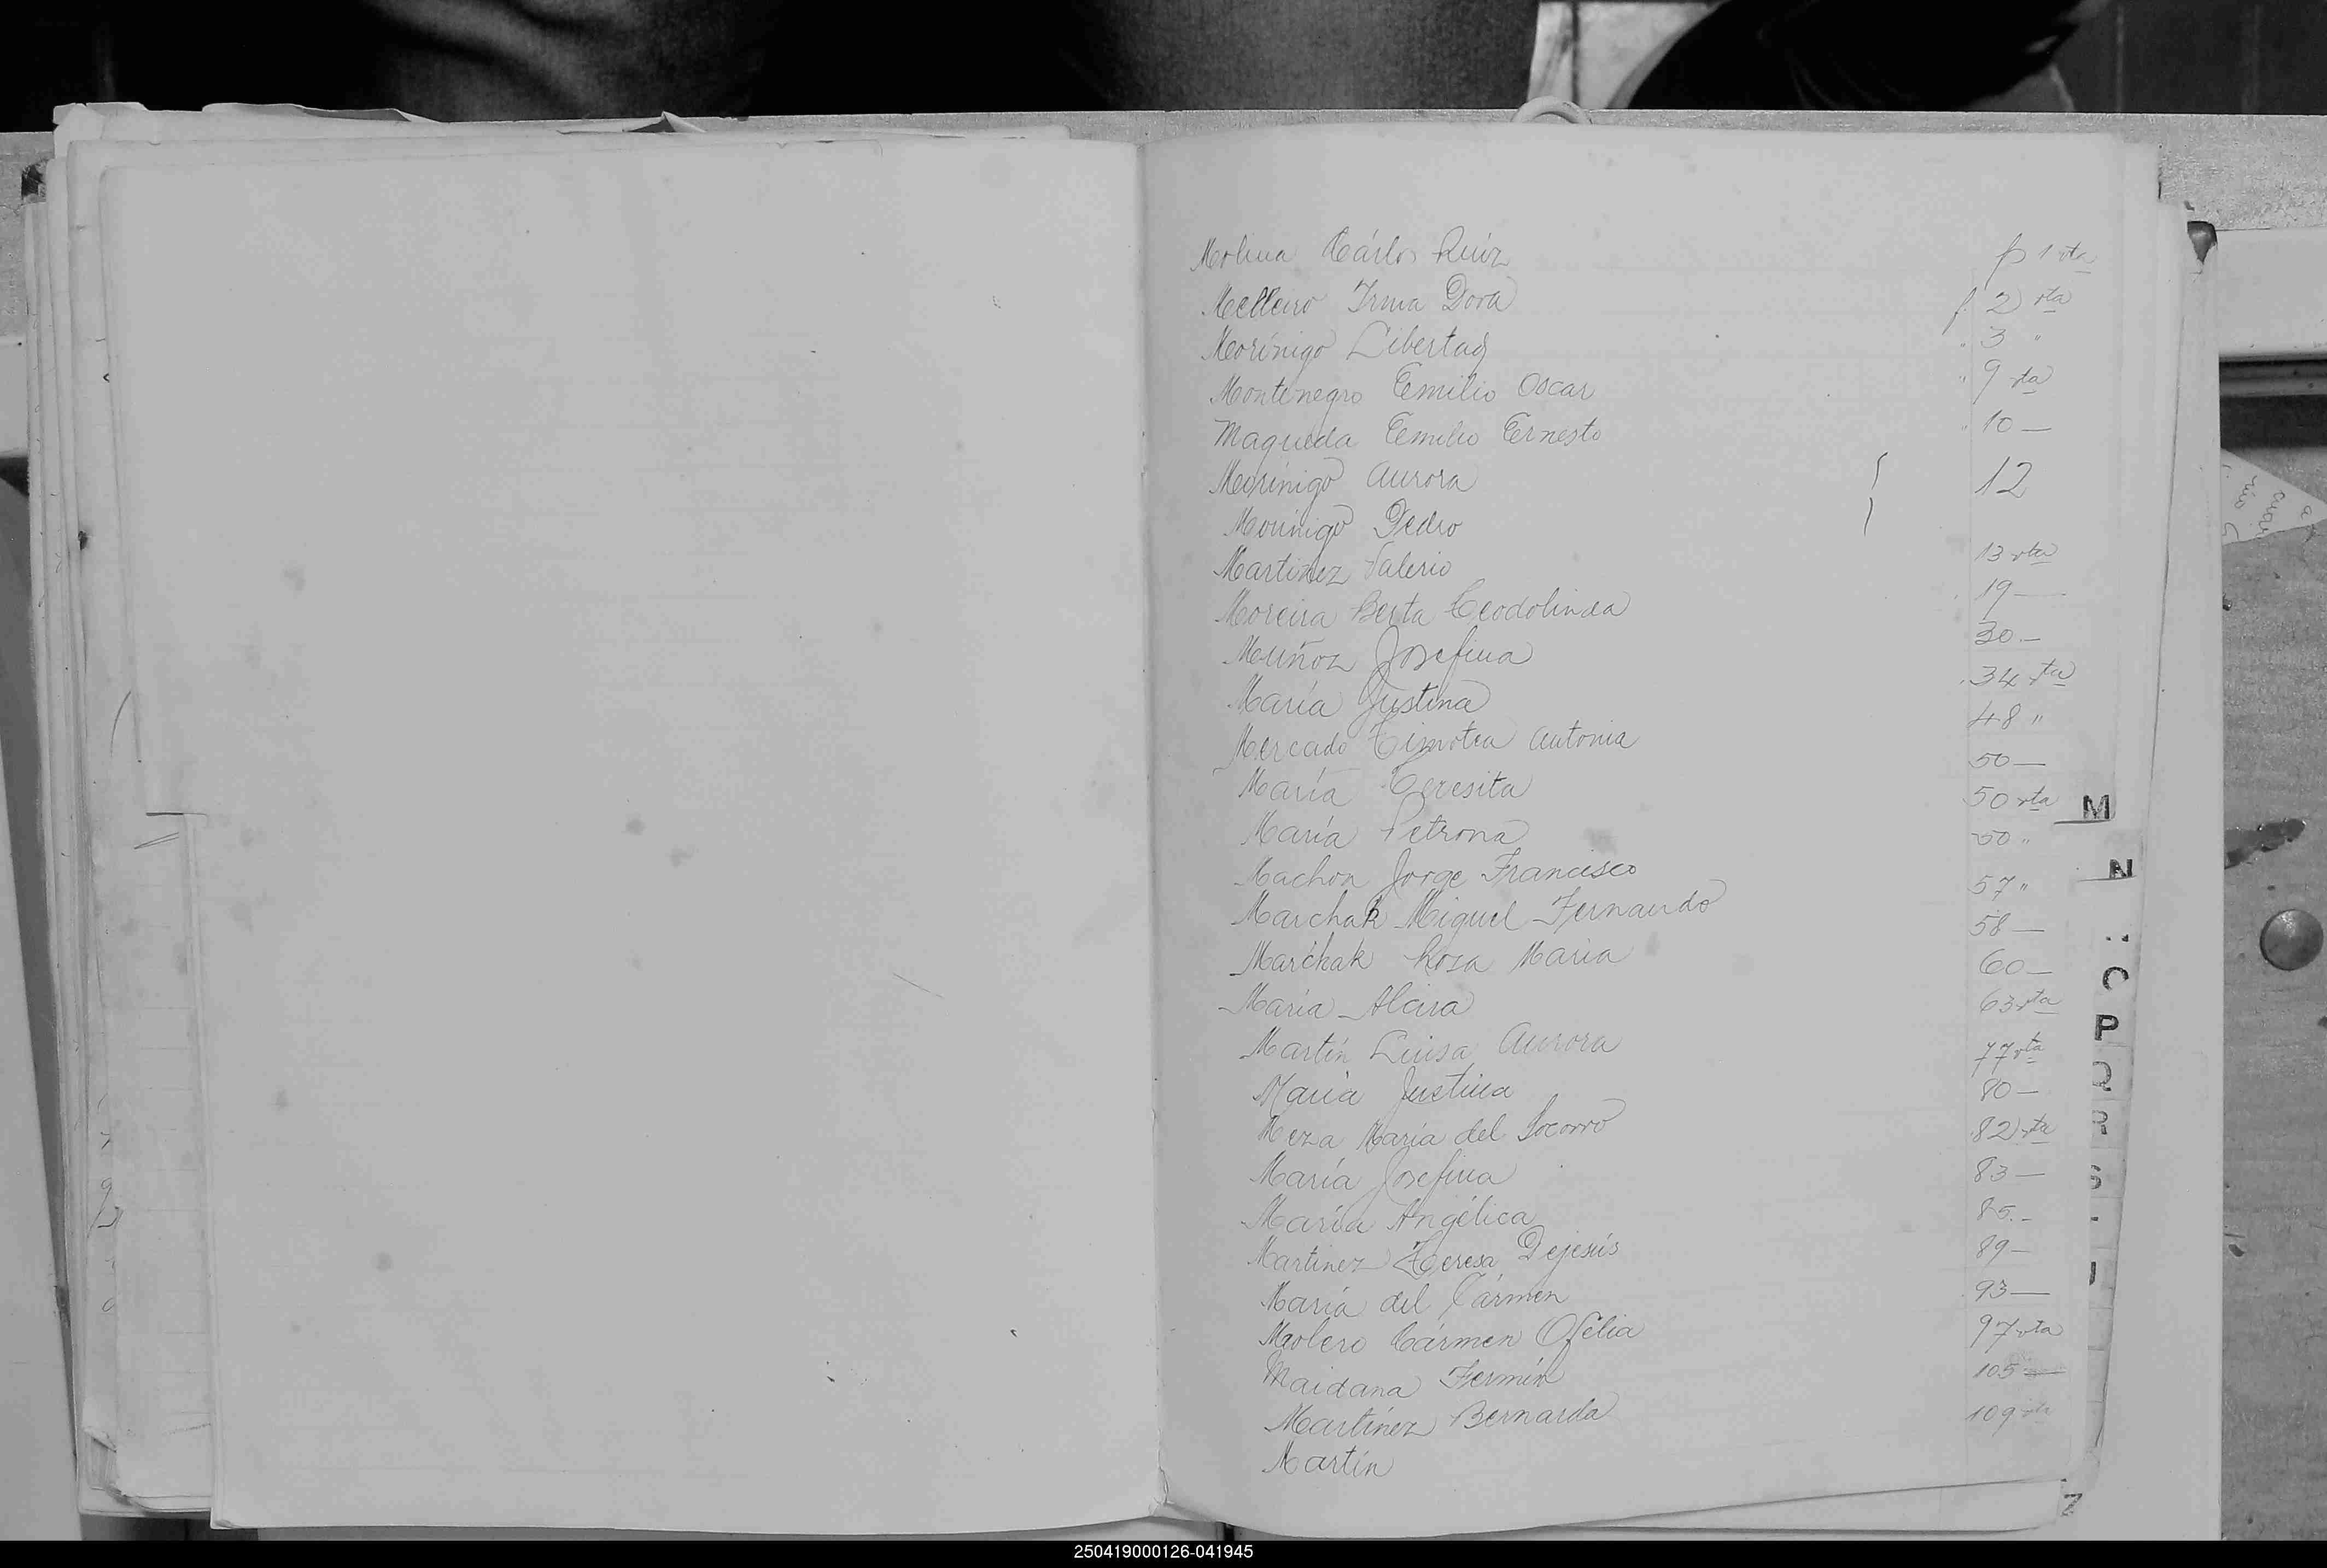 Molina Cárlos Ruiz f 1 vta
Melleiro Irma Dora f. 2 vta
Morínigo Libertad " 3 "
Montenegro Emilio Oscar " 9 vta
Maqueda Emilio Ernesto " 10 —
Morínigo Aurora 12
Morínigo Pedro
Martínez Valerio 13 vta
Moreira Berta Teodolinda 19 —
Muñoz Josefina 30 —
María Justina 34 vta
Mercado Timotea Antonia 48 "
María Teresita 50 —
María Petrona 50 vta
Machon Jorge Francisco 50 "
Marchak Miguel Fernando 57 "
Marchak Rosa María 58 —
María Alcira 60 —
Martín Luisa Aurora 63 vta
María Justina 77 vta
Meza María del Socorro 80 —
María Josefina 82 vta
María Angélica 83 —
Martinez Teresa Dejesús 85 —
María del Cármen 89 —
Molero Cármen Ofelia 93 —
Maidana Fermín 97 vta
Martínez Bernarda 105 —
Martín 109 vta
M
N
O
P
Q
R
S
Z
250419000126-041945